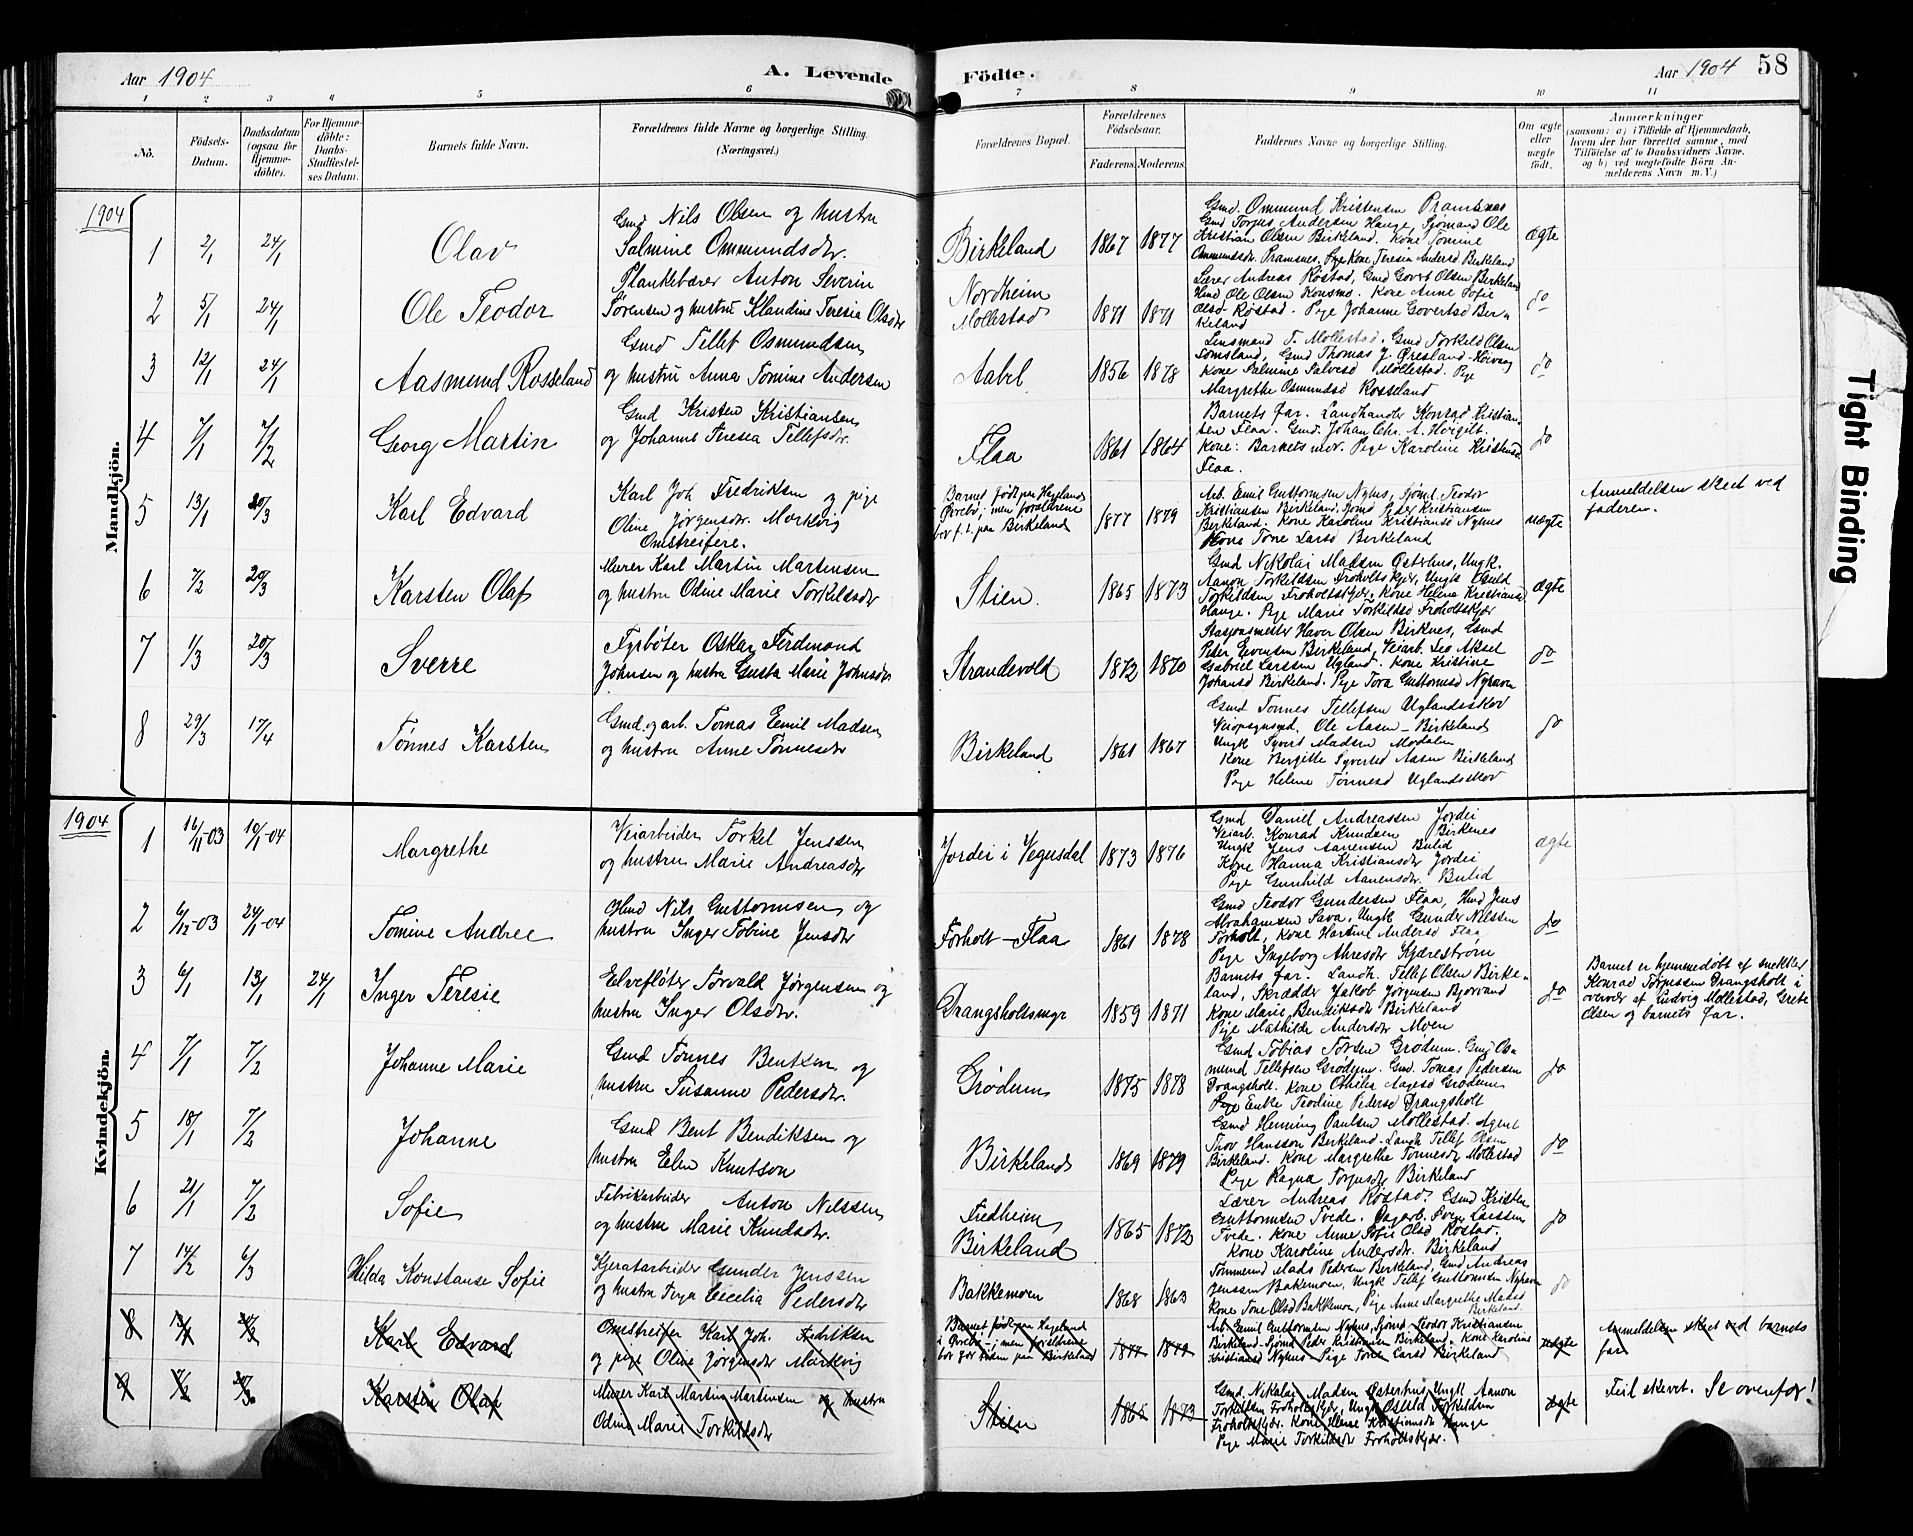 Aar 1904
A. Levende
Födte.
Aar 1904
58
1 2 3 4 5 6 7 8 9 10 11
No.
Födsels-
Datum.
Daabsdatum
(ogsaa for
Hjemme-
döbte).
For Hjemme-
döbte:
Daabs-
Stadfæstel-
ses Datum.
Barnets fulde Navn.
Forældrenes fulde Navne og borgerlige Stilling.
(Næringsvei.)
Forældrenes Bopæl.
Forældrenes
Födselsaar.
Faderens. Moderens.
Faddernes Navne og borgerlige Stilling.
Om ægte
eller
uægte
födt.
Anmærkninger
(saasom: a) i Tilfælde af Hjemmedaab,
hvem der har forrettet samme, med
Tilföielse af to Daabsvidners Navne,
og b) ved uægtefödte Börn An-
melderens Navn m. V.)
Mandkjön.
1904
1 2/1 24/1 Olav
Gmd Nils Olsen og hustru
Salmine Ommundsdtr.
Birkeland 1867 1877
Gmd. Ommund Kristensen Pramsnes
Gmd. Torjus Andersen Hauge, Sjømand Ole
Kristian Olsen Birkeland. Kone Tomine
Ommundsdr. Pramsnes. Kone Teresia Andersd Birkeland
ægte
2 5/1 24/1 Ole Teodor
Plankebærer Anton Severin
Sørensen og hustru Klaudine Teresie Olsdtr
Nordheim
Mollestad
1871 1871
Lærer Andreas Røstad, Gmd Govert Olsen Birkeland
Hmd Ole Olsen Konsmo. Kone Anne Sofie
Olsd Røstad. Pige Johanne Govertsd Bir-
keland
do
3 12/1 24/1 Aasmund Rosseland
Gmd Tellef Osmundsen
og hustru Anna Tomine Andersen
Aabel 1856 1878
Lensmand T. Mollestad. Gmd Torkeld Olsen
Somsland, Gmd Thomas J. Øresland-Høivaag
Kone Salmine Salvesd Mollestad. Pige
Margrethe Osmundsd Rosseland
do
4 7/1 7/2 Georg Martin
Gmd Kristen Kristiansen
og Johanne Teresia Tellefsdtr.
Flaa 1861 1864
Barnets far. Landhandler Konrad Kristian-
sen Flaa. Gmd. Johan Chr. A. Høigilt.
Kone: Barnets mor. Pige Karoline Kristensd
Flaa.
do
5 13/1 20/3 Karl Edvard
Karl Joh Fredriksen og pige
Oline Jørgensdtr. Markvig
Omstreifere.
Barnet født paa Hægeland
i Øvrebø, men forældrene
bor f.t. paa Birkeland
1877 1879
Arb. Emil Guttormsen Nyhus, Sjømd. Teodor
Kristiansen Birkeland. Sjømd Peder Kristiansen
Birkeland. Kone Karoline Kristiansd Nyhus
Kone Tone Larsd Birkeland
uægte
Anmeldelsen skeet ved
faderen.
6 7/2 20/3 Karsten Olaf
Murer Karl Martin Martensen
og hustru Odine Marie Torkildsdtr
Stien. 1865 1873
Gmd Nikolai Madsen Østerhus, Ungk.
Aanon Torkildsen Froholtskjær, Ungk Osuld
Torkildsen Froholtskjær. Kone Helene Kristiansd
Hauge. Pige Marie Torkildsd Froholtskjær
ægte
7 1/3 20/3 Sverre
Fyrbøter Oskar Ferdinand
Johnsen og hustru Gusta Marie Johnsdtr
Strandevold 1872 1870
Stasjonsmester Haver Olsen Birknes, Gmd
Peter Evensen Birkeland, Veiarb. Leo Aksel
Gabriel Larssen Ugland. Kone Kristine
Johansd Birkeland. Pige Tora Guttormsd
do
8 29/3 17/4 Tønnes Karsten
Gmd. og arb. Tomas Emil Madsen
og hustru Anne Tønnesdtr
Birkeland 1861 1867
Gmd Tønnes Tellefsen Uglandsskov
Veiopsynsmd. Ole Aasen-Birkeland
Ungk Syvert Madsen Modalen
Kone Bergitte Syvertsd Aasen Birkeland
Pige Helene Tønnesd Uglandsskov
do
Kvindekjön.
1904
1 16/11-03 10/1-04 Margrethe
Veiarbeider Torkel Jenssen
og hustru Marie Andreasdtr
Jordei i Vegusdal 1873 1876
Gmd Daniel Andreassen Jordei
Veiarb. Konrad Knudsen Birkenes
Ungk Jens Aanensen Bulid
Kone Hanna Kristiansdtr Jordei
Pige Gunhild Aanensdtr. Bulid
ægte
2 6/12-03 24/1-04 Tomine Andrea
Hmd Nils Guttormsen og
hustru Inger Tobine Jensdtr
Forholt-Flaa 1861 1878
Gmd Teodor Gundersen Flaa, Hmd Jens
Abrahamsen Sava, Ungk Gunder Nilssen
Forholt, Kone Hartine Andersd Flaa
Pige Ingeborg Ahresdtr Kjærestrøm
do
3 6/1 13/1 24/1 Inger Teresie
Elvefløter Torvald Jørgensen og
hustru Inger Olsdtr.
Drangsholtsmyr 1859 1871
Barnets far. Landh. Tellef Olsen Birke-
land, Skrædder Jakob Jørgensen Bjorvand
Kone Marie Bendiksdtr Birkeland
Pige Mathilde Andersdtr Moen
do
Barnet er hjemmedøbt af snekker
Konrad Torjussen Drangsholt i
overvær af Ludvig Mollestad, Grete
Olsen og barnets far.
4 7/1 7/2 Johanne Marie
Gmd Tønnes Bentsen og
hustru Susanne Pedersdtr.
Grødum 1875 1878
Gmd Tobias Torsen Grødum. Gmd Os-
mund Tellefsen Grødum. Gmd. Tomas Pedersen
Drangsholt. Kone Othilie Aagesd Grødum
Pige Enke Teodine Pedersd Drangsholt
do
5 18/1 7/2 Johanne
Gmd Bent Bendiksen og
hustru Elen Knutson
Birkeland 1869 1879
Gmd Henning Paulsen Mollestad. Agent
Thov Hansson Birkeland. Landh Tellef Olsen
Birkeland. Kone Margrethe Tønnesdtr Mollestad
Pige Ragna Torjusdtr Birkeland
do
6 21/1 7/2 Sofie
Fabrikarbeider Anton Nilssen
og hustru Marie Knudsdtr.
Fredheim
Birkeland
1865 1872
Lærer Andreas Røstad. Gmd Kristen
Guttormsen Tvede. Dagarb. Sven Larssen
Tvede. Kone Anne Sofie Olsd Røstad.
Kone Karoline Andersdtr. Birkeland
do
7 14/2 6/3 Hilda Konstanse Sofie
Kjøratarbeider Gunder Jenssen
og hustru Cecelia Pedersdtr
Bakkemoen 1868 1863
Tømmermd Mads Pedersen Birkeland, Gmd Andreas
Jenssen Bakkemoen, Ungk Tellef Guttormsen
Kone Tone Olsd Bakkemoen, Pige Anne Margrethe Madsd
Birkeland.
do
8 13/1 20/3 Karl Edvard
Omstreifer Karl Joh. Fredriksen
og pige Oline Jørgensdtr Markvig
Barnet født paa Hægeland
i Øvrebø, men forældrene
bor for tiden paa Birkeland
1877 1879
Arb Emil Guttormsen Nyhus, Sjømd Teodor Kristiansen
Birkeland. Sjømd Peder Kristiansen Birkeland. Kone Karoline
Kristiansd Nyhus Pige Tone Larsd Birkeland
uægte
Anmeldelsen skeet ved barnets
far
9 7/2 20/3 Karsten Olaf
Murer Karl Martin Martensen og hustru
Odine Marie Torkildsdtr
Stien 1865 1873
Gmd. Nikolay Madsen Østerhus, Ungk Aanon
Torkildsen Froholtskjær, Ungk Osuld Torkildsen
Froholtskjær. Kone Helene Kristiansdtr Hauge
Pige Marie Torkildsdtr Froholtskjær.
ægte
Feil skrevet. Se ovenfor!
Tight Binding